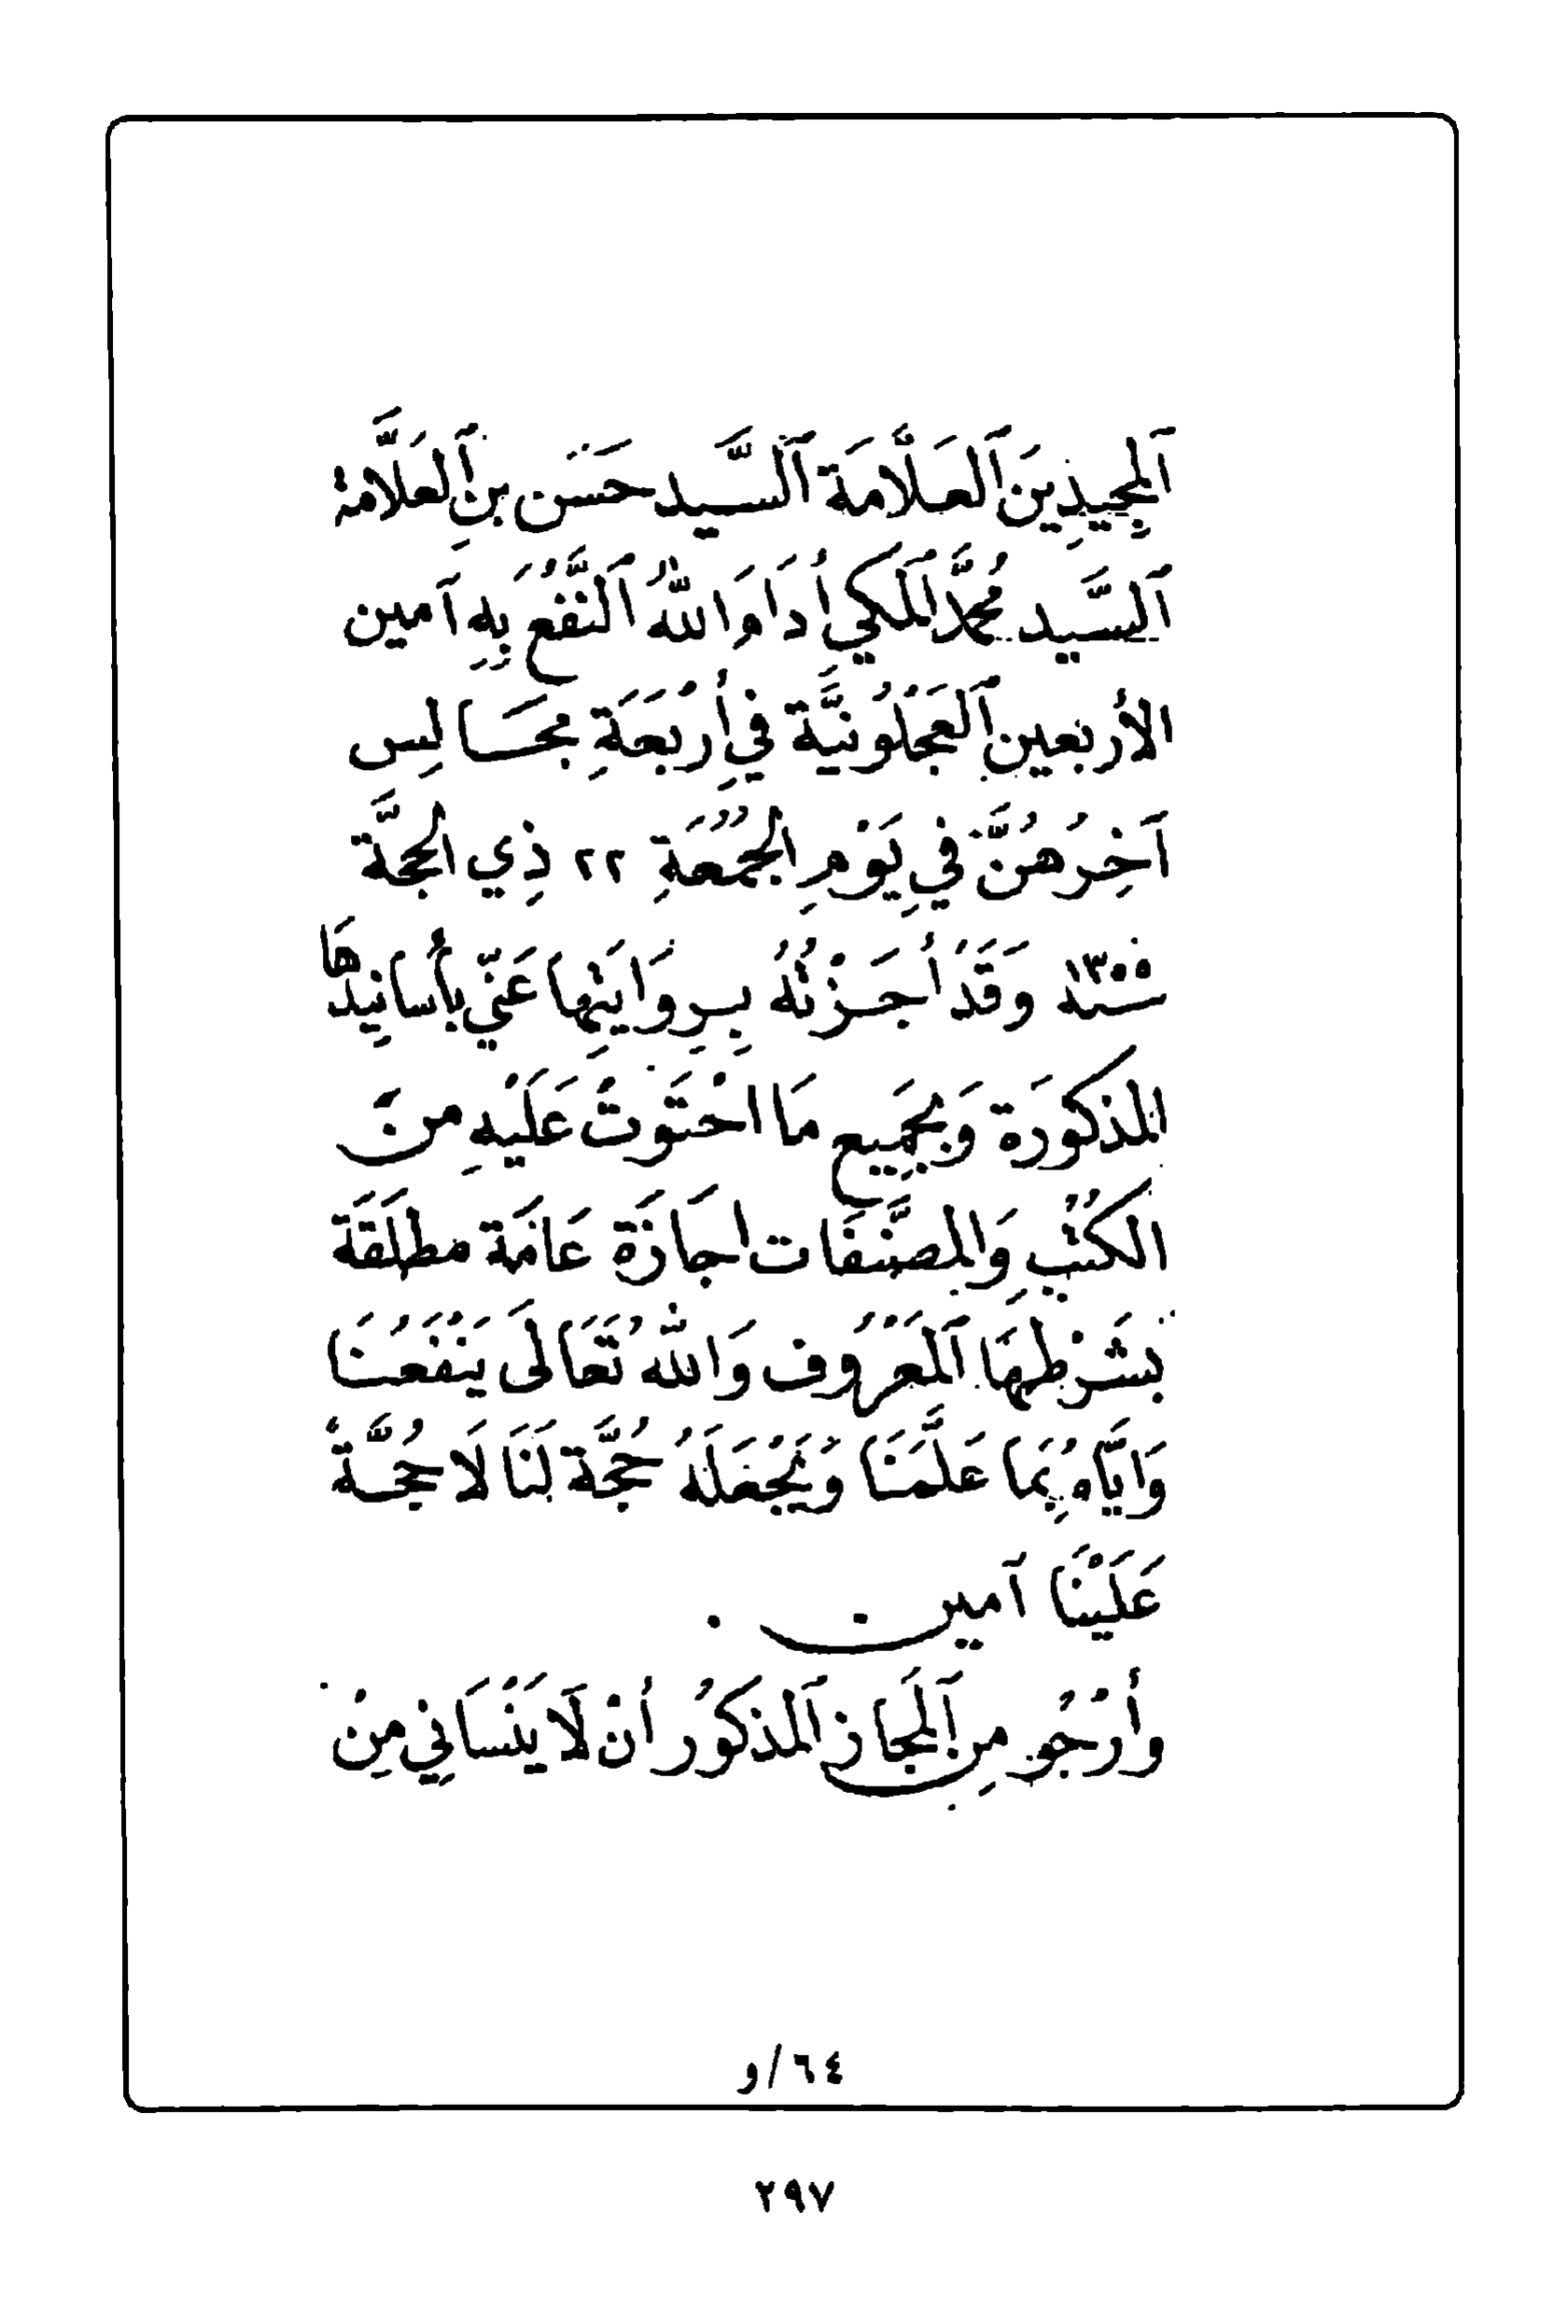 اَلمجِيدِينَ اَلعَلاَّمَة اَلسَّيد حَسَن بنِ اَلعَلاَّمة
اَلسَّيد محُمَّد اَلمَكي أدَاوَ اللهُ اَلنَّفْعُ بِهِ آمين
الأربعين اَلعَجْلُونيَّة في أَرْبَعَةِ مجَالِس
آخِرُهُنَّ في يَوْمِ الجُمُعَةِ ٢٢ ذِي الحجَّة
سنة ١٣٥٥ وَقَدْ أجَزْتُهُ بِرِوَايَتِها عَنّي بأسَانِيدهَا
المذكورَة وَبجَمِيع مَا احْتَوَتْ عَلَيْهِ منَ
الكتُبِ وَالمصَنَّفَات اجَازَة عَامَة مطلَقَة
بشَرْطِهَا اَلمَعْرُوف وَاللهُ تَعَالَى يَنْفَعُنَا
وَايَّاهُ بِمَا عَلَّمَنَا وَيَجْعَلَهُ حُجَّة لَنَا لَا حُجَّةً
عَلَيْنَا آمين .
وأرْجُو مِن اَلمجَاز اَلمذكوُر أنْ لَا يَنْسَاني مِنْ
٦٤/و
٢٩٧